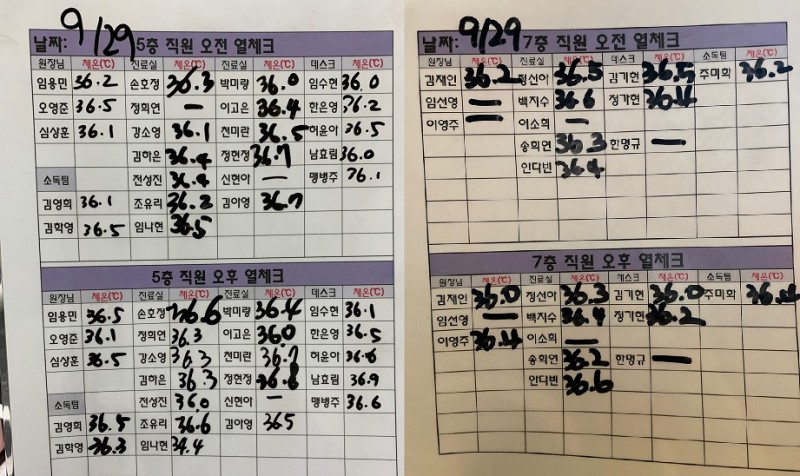 9/29
날짜: 5층 직원 오전 열체크
원장님 체온(℃) 진료실 체온(℃) 진료실 체온(℃) 데스크 체온(℃)
임용민 36.2 손호정 36.3 박미랑 36.0 임수현 36.0
오영준 36.5 정희연 — 이고은 36.4 한은영 36.2
심상훈 36.1 강소영 36.1 천미란 36.5 허윤이 36.5
김하은 36.4 정현정 36.7 남효림 36.0
소독팀 전성진 36.4 신현아 — 맹병주 76.1
김영희 36.1 조유리 36.2 김아영 36.7
김학영 36.5 임나현 36.5
5층 직원 오후 열체크
원장님 체온(℃) 진료실 체온(℃) 진료실 체온(℃) 데스크 체온(℃)
임용민 36.5 손호정 36.6 박미랑 36.4 임수현 36.1
오영준 36.1 정희연 36.3 이고은 360 한은영 36.5
심상훈 36.5 강소영 36.3 천미란 36.7 허윤이
김하은 36.3 정현정 36.6 남효림 36.9
소독팀 전성진 36.0 신현아 — 맹병주 36.6
김영희 36.5 조유리 36.6 김아영 365
김학영 36.3 임나현 34.4
9/29
날짜: 7층 직원 오전 열체크
원장님 체온(℃) 진료실 체온(℃) 데스크 체온(℃) 소독팀 체온(℃)
김재인 36.2 정선아 36.5 김기현 36.5 주미화 36.2
임선영 — 백지수 36.6 정가현 36.4
이영주 — 이소희 —
송희연 36.3 한명규 —
안다빈 36.4
7층 직원 오후 열체크
원장님 체온(℃) 진료실 체온(℃) 데스크 체온(℃) 소독팀 체온(℃)
김재인 36.0 정선아 36.3 김기현 36.0 주미화 36.4
임선영 — 백지수 36.4 정가현 36.2
이영주 36.4 이소희 —
송희연 36.2 한명규 —
안다빈 36.6